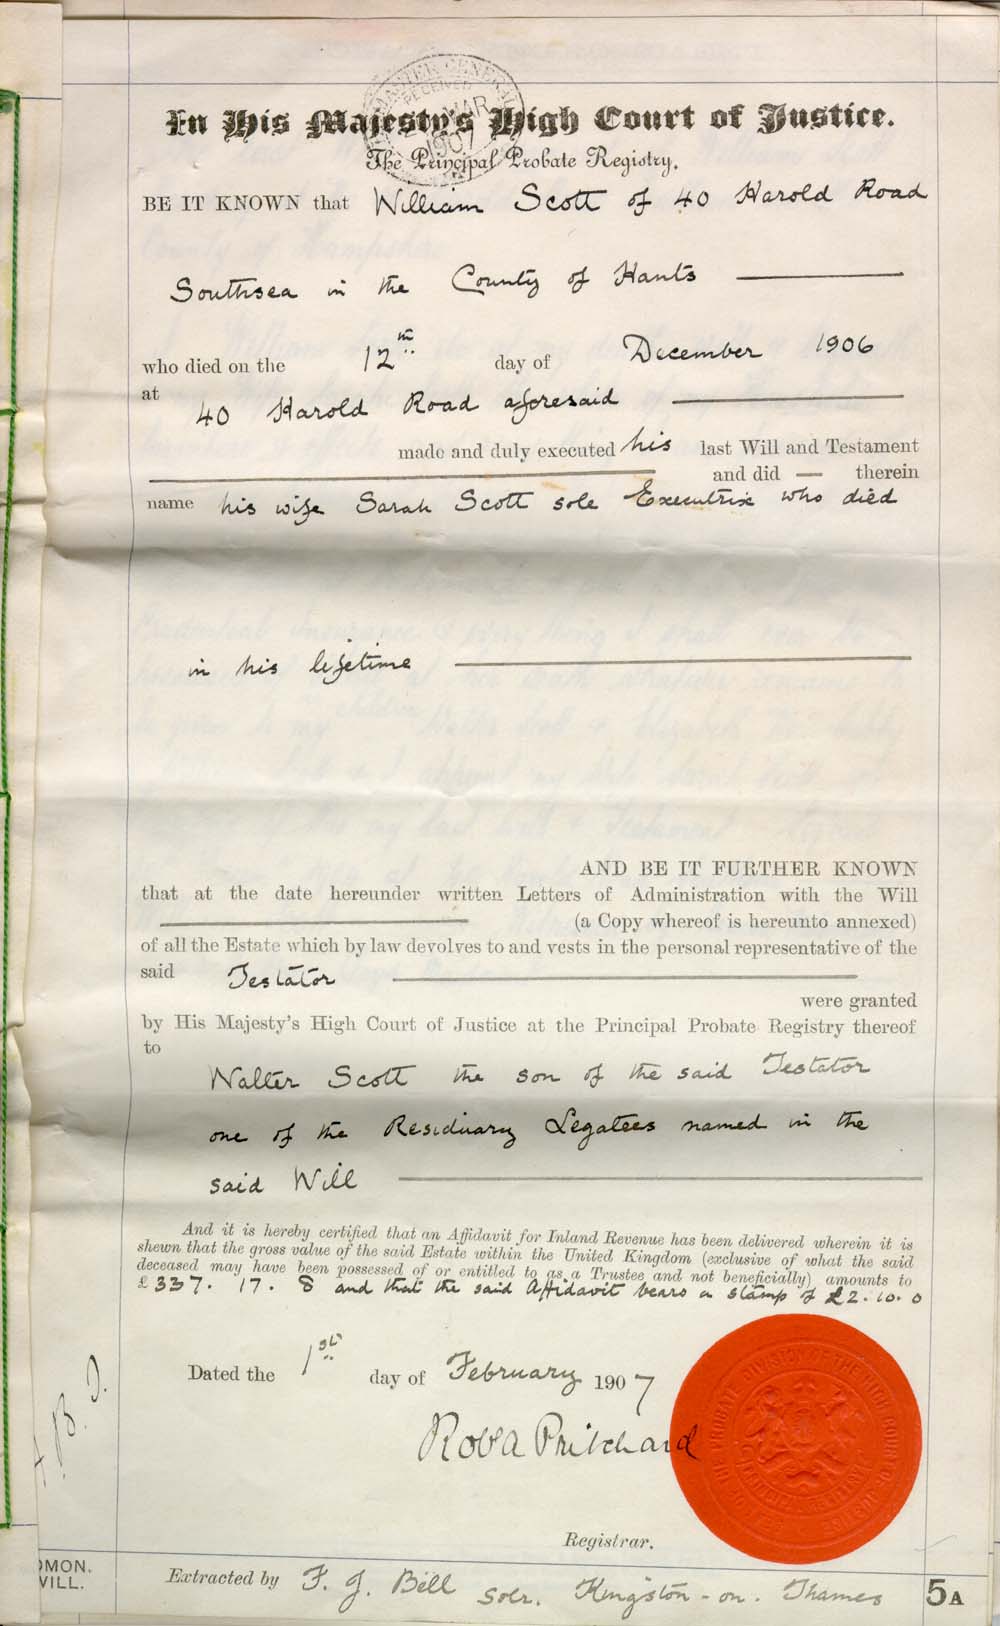 MASTER GENERAL
RECEIVED
MAR
1907
In His Majesty's High Court of Justice.
The Principal Probate Registry.
BE IT KNOWN that William Scott of 40 Harold Road
Southsea in the County of Hants
who died on the 12th day of December 1906
at 40 Harold Road aforesaid
made and duly executed his last Will and Testament
and did — therein
name his wife Sarah Scott sole Executrix who died
in his lifetime
AND BE IT FURTHER KNOWN
that at the date hereunder written Letters of Administration with the Will
(a Copy whereof is hereunto annexed)
of all the Estate which by law devolves to and vests in the personal representative of the
said Testator
were granted
by His Majesty's High Court of Justice at the Principal Probate Registry thereof
to
Walter Scott the son of the said Testator
one of the Residuary Legatees named in the
said Will
And it is hereby certified that an Affidavit for Inland Revenue has been delivered wherein it is
shewn that the gross value of the said Estate within the United Kingdom (exclusive of what the said
deceased may have been possessed of or entitled to as a Trustee and not beneficially) amounts to
£337. 17. 8 and that the said Affidavit bears a stamp of £2. 10. 0
Dated the 1st day of February 1907
Robt A Pritchard
Registrar.
THE PROBATE DIVISION OF THE HIGH COURT OF JUSTICE
PRINCIPAL REGISTRY
DMON.
WILL.
Extracted by F. J. Bell Solr. Kingston-on-Thames
5A